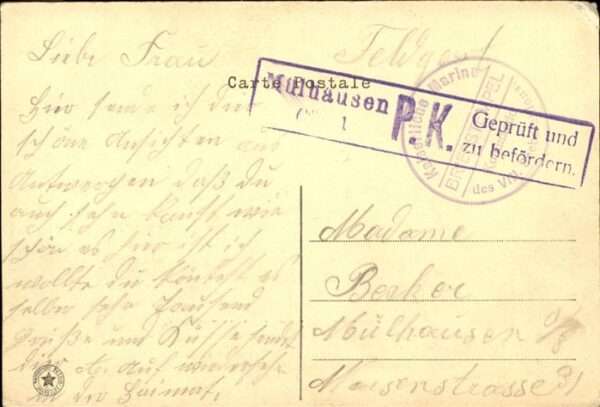 Liebe Frau
Feldpost
Carte Postale
Mülhausen
P.K.
Geprüft und
zu befördern.
Kaiserliche Marine
BRIEFSTEMPEL
Hier sende ich dir
schöne Ansichten aus
Antwerpen daß du
auch sehn kannst wie
schön es hier ist ich
wollte du könntest es
selber sehn Tausend
Grüße und Küsse sendet
dir A. Auf wiedersehn
in der Heimat.
Madame
Becker
Mülhausen i/E